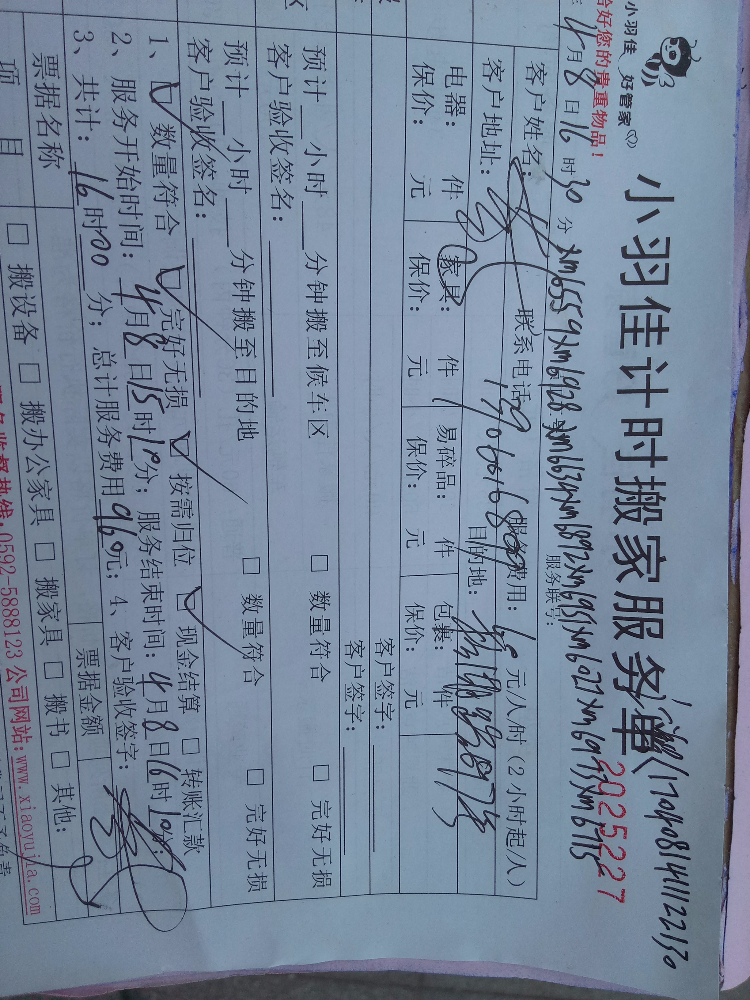 小羽佳 好管家
小羽佳计时搬家服务单
2025227
170408141112230
恰好,您的贵重物品!
4月8日16时30分 xm6559 xm6928 xm6634 xm6892 xm6951 xm6027 xm6973 xm6715
服务联号:
客户姓名: 联系电话: 服务费用: 40元/人/时(2小时起/人)
客户地址: 目的地:
电器: 件 家具: 件 易碎品: 件 包裹: 件
保价: 元 保价: 元 保价: 元 保价: 元
客户签字:
客户签字:
预计 小时 分钟搬至候车区 □ 数量符合 □ 完好无损
客户验收签名:
预计 小时 分钟搬至目的地 □ 数量符合 □ 完好无损
客户验收签名:
1、□ 数量符合 □ 完好无损 □ 按需归位 □ 现金结算 □ 转账汇款
2、服务开始时间: 4月8日15时10分; 服务结束时间: 4月8日16时10分;
3、共计: 16时00分; 总计服务费用960元; 4、客户验收签字:
票据名称 票据金额
项 目 □ 搬设备 □ 搬办公家具 □ 搬家具 □ 搬书 □ 其他:
服务监督热线:0592-5888123 公司网站:www.xiaoyujia.com